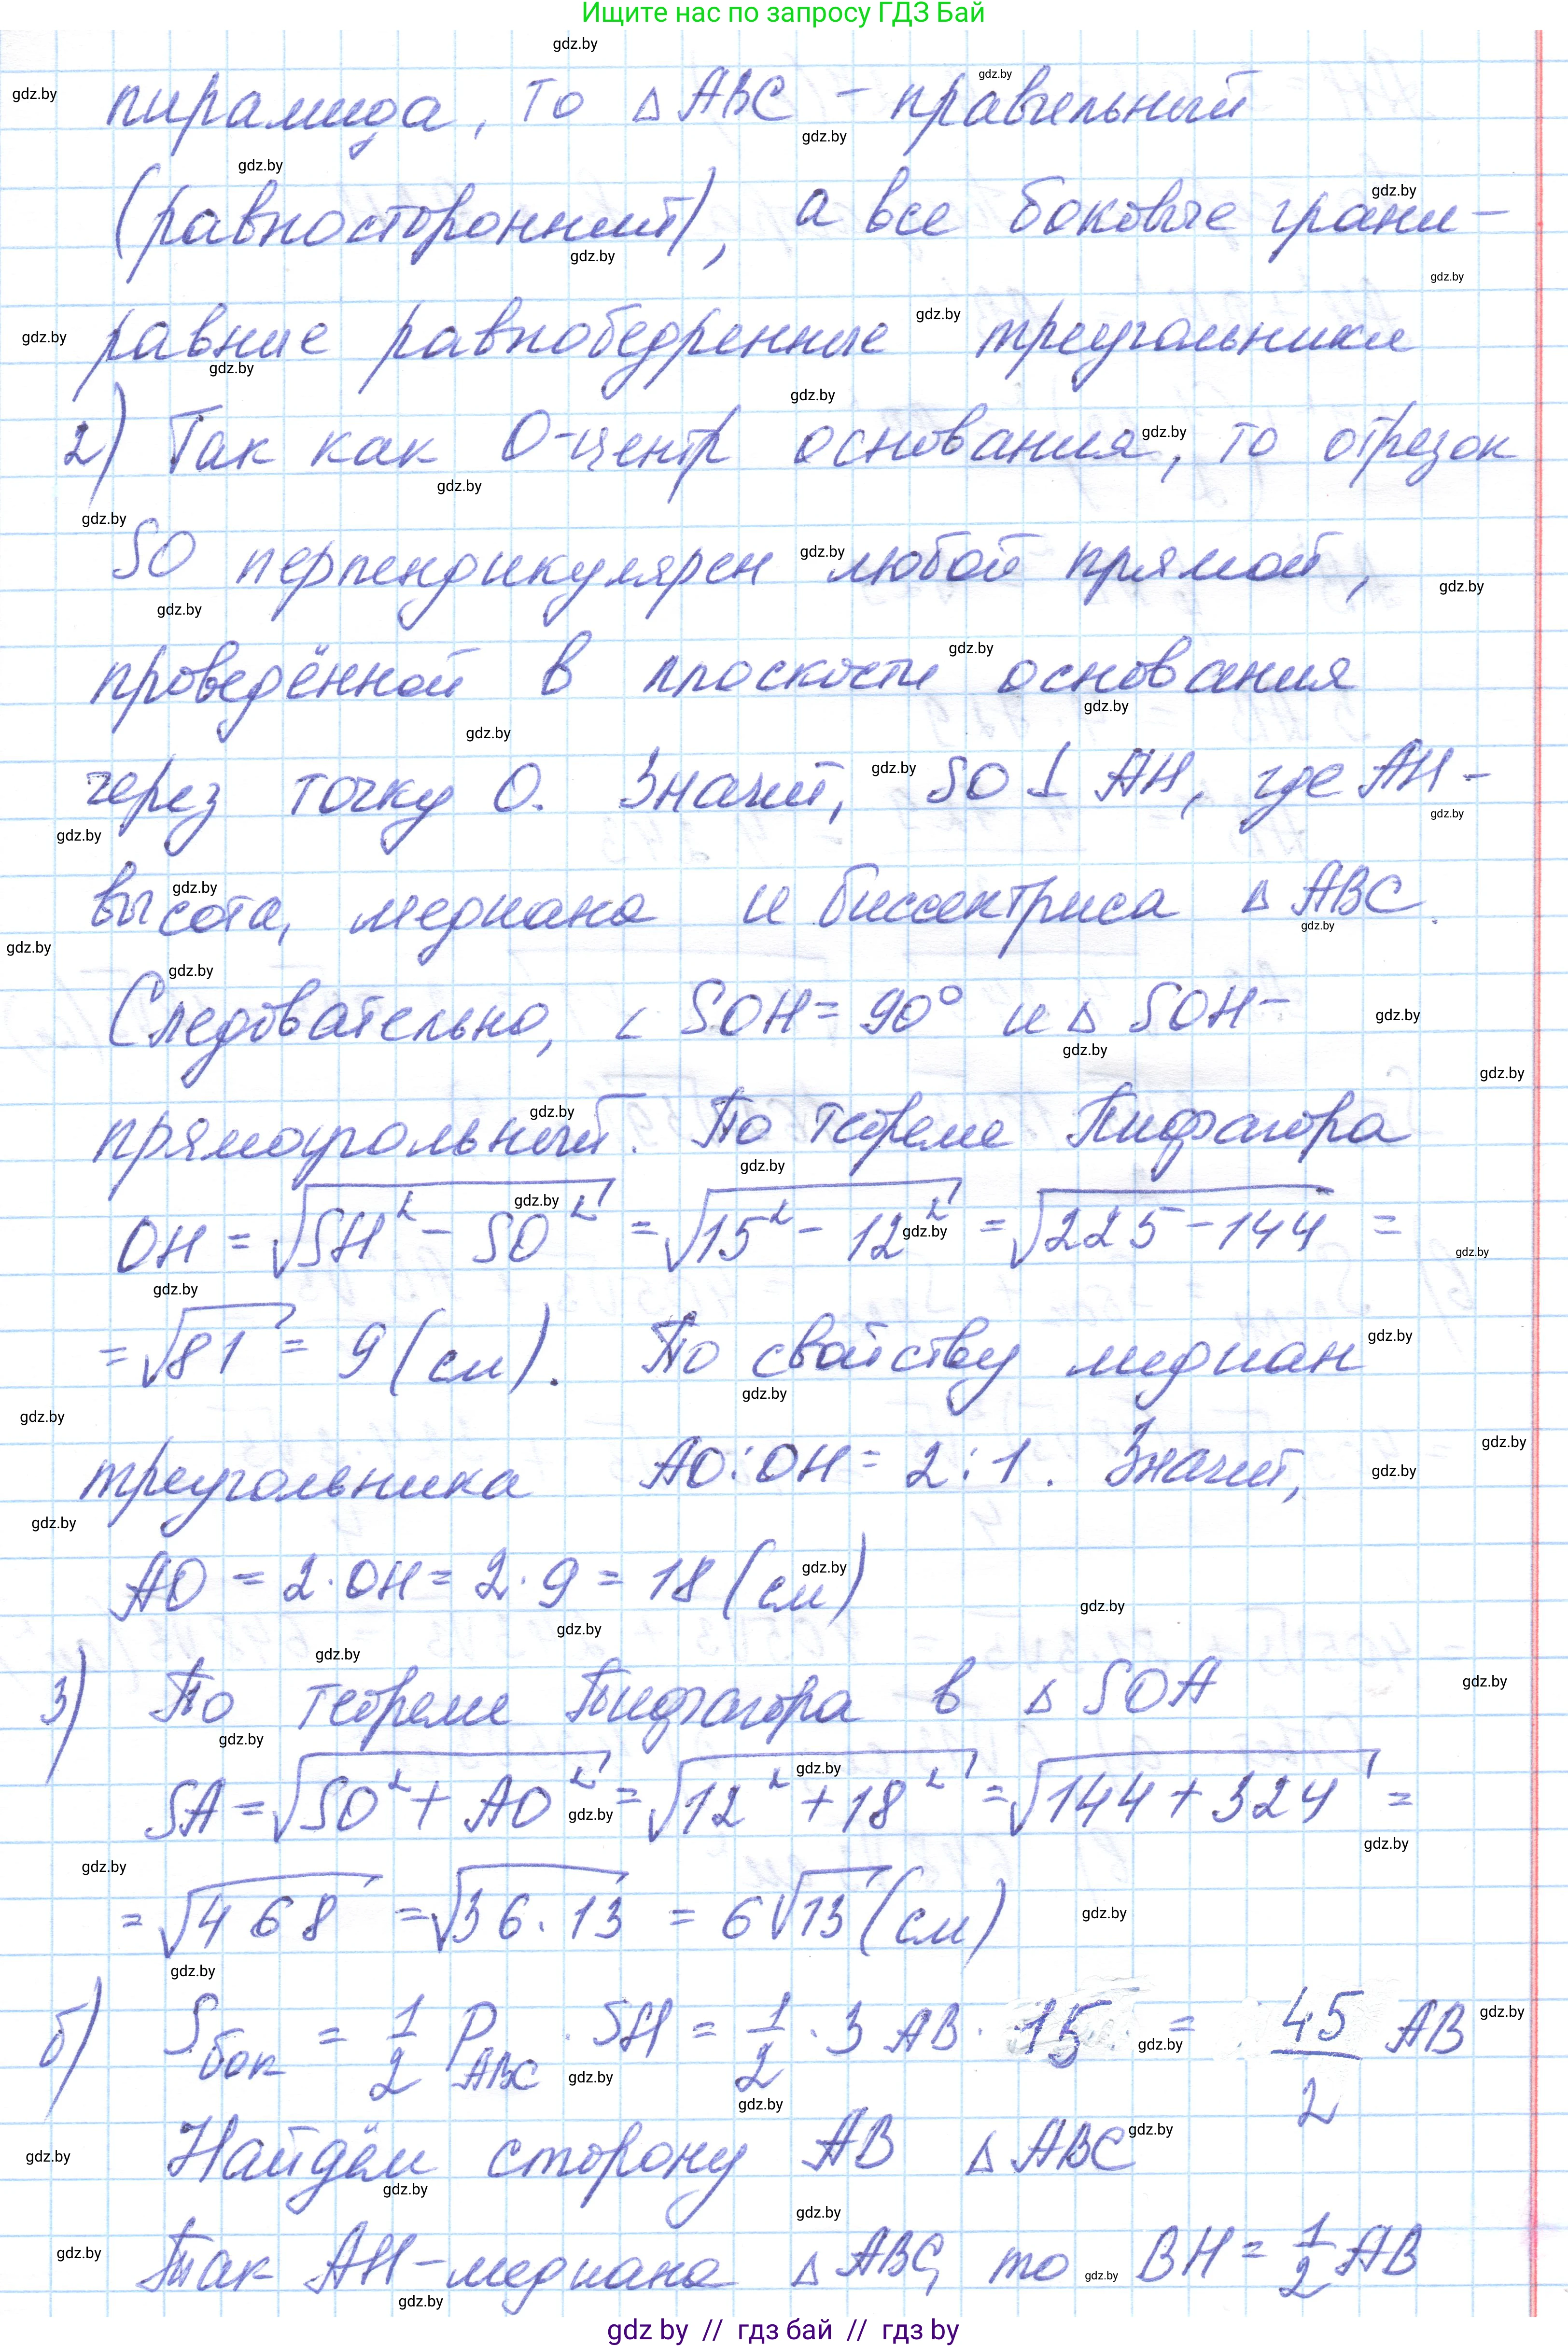 Ищите нас по запросу ГДЗ Бай
пирамида, то △ ABC - правильный
(равносторонний), а все боковые грани -
равные равнобедренные треугольники
2) Так как O-центр основания, то отрезок
SO перпендикулярен любой прямой,
проведённой в плоскости основания
через точку O. Значит, SO ⊥ AH, где AH -
высота, медиана и биссектриса △ ABC.
Следовательно, ∠ SOH = 90° и △ SOH -
прямоугольный. По теореме Пифагора
OH = √(SH² - SO²) = √(15² - 12²) = √(225 - 144) =
= √81 = 9 (см). По свойству медиан
треугольника AO : OH = 2 : 1. Значит,
AO = 2 · OH = 2 · 9 = 18 (см)
3) По теореме Пифагора в △ SOA
SA = √(SO² + AO²) = √(12² + 18²) = √(144 + 324) =
= √468 = √(36 · 13) = 6√13 (см)
б) S бок = 1/2 P ABC · SH = 1/2 · 3 AB · 15 = 45/2 AB
Найдём сторону AB △ ABC
Так AH - медиана △ ABC, то BH = 1/2 AB
gdz by // гдз бай // гдз by